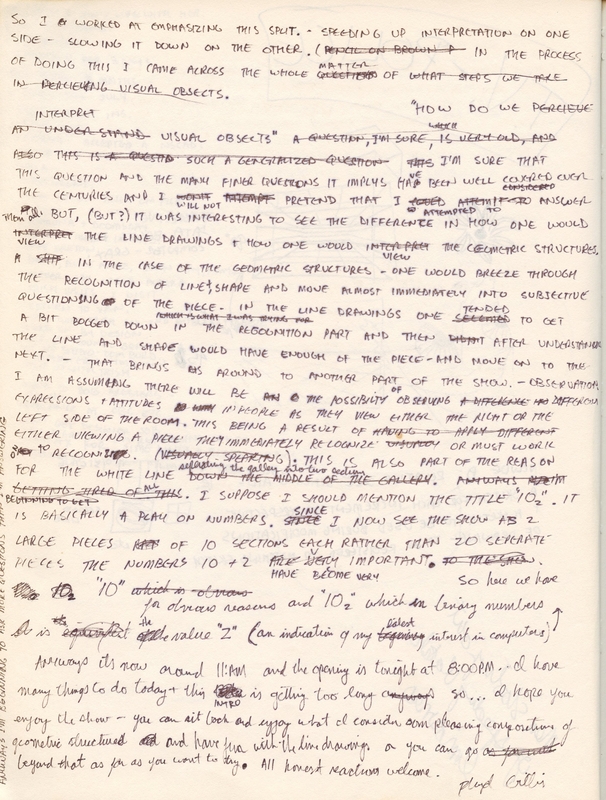 SO I WORKED AT EMPHASIZING THIS SPLIT. - SPEEDING UP INTERPRETATION ON ONE
SIDE - SLOWING IT DOWN ON THE OTHER. (PENCIL ON BROWN P IN THE PROCESS
OF DOING THIS I CAME ACROSS THE WHOLE QUESTION MATTER OF WHAT STEPS WE TAKE
IN PERCIEVING VISUAL OBJECTS.
"HOW DO WE PERCIEVE
INTERPRET
AN UNDERSTAND VISUAL OBJECTS" A QUESTION, I'M SURE, WHICH IS VERY OLD, AND
ALSO THIS IS A QUESTIO SUCH A GENERALIZED QUESTION THIS I'M SURE THAT
THIS QUESTION AND THE MANY FINER QUESTIONS IT IMPLYS HAVE BEEN WELL COVERED OVER
CONSIDERED
THE CENTURIES AND I WON'T ATTEMPT WILL NOT PRETEND THAT I ATTEMPT TO ANSWER
ATTEMPTED TO
THEM ALL BUT, (BUT?) IT WAS INTERESTING TO SEE THE DIFFERENCE IN HOW ONE WOULD
INTERPRET VIEW THE LINE DRAWINGS + HOW ONE WOULD INTERPRET VIEW THE GEOMETRIC STRUCTURES.
A IN THE CASE OF THE GEOMETRIC STRUCTURES - ONE WOULD BREEZE THROUGH
THE RECOGNITION OF LINE & SHAPE AND MOVE ALMOST IMMEDIATELY INTO SUBJECTIVE
QUESTIONING OF THE PIECE. - IN THE LINE DRAWINGS ONE SEEMED TENDED TO GET
A BIT BOGGED DOWN WHICH IS WHAT I WAS TRYING FOR IN THE RECOGNITION PART AND THEN DIDN'T AFTER UNDERSTANDING
THE LINE AND SHAPE WOULD HAVE ENOUGH OF THE PIECE - AND MOVE ON TO THE
NEXT. - THAT BRINGS US AROUND TO ANOTHER PART OF THE SHOW. - OBSERVATION.
I AM ASSUMEING THERE WILL BE THE POSSIBLITY OF OBSERVING A DIFFERENCE IN DIFFERENT
EXPRESSIONS + ATTITUDES IN PEOPLE AS THEY VIEW EITHER THE RIGHT OR THE
LEFT SIDE OF THE ROOM. THIS BEING A RESULT OF HAVING TO APPLY DIFFERENT
EITHER VIEWING A PIECE THEY IMMEDIATELY RECOGNIZE VISUALLY OR MUST WORK
TO RECOGNIZE. (VISUALLY SPEAKING). THIS IS ALSO PART OF THE REASON
FOR THE WHITE LINE seperating the gallery into two sections DOWN THE MIDDLE OF THE GALLERY. ANYWAYS
GETTING TIRED OF ALL THIS. I SUPPOSE I SHOULD MENTION THE TITLE "10₂". IT
BEGINNING TO GET
IS BASICALLY A PLAY ON NUMBERS. SINCE SINCE I NOW SEE THE SHOW AS 2
LARGE PIECES OF 10 SECTIONS EACH RATHER THAN 20 SEPERATE
PIECES THE NUMBERS 10 + 2 ARE VERY HAVE BECOME VERY IMPORTANT. TO THE SHOW.
So here we have
10₂ "10" which is obvious
for obvious reasons and "10₂" which in binary numbers
is equivalent the value "2" (an indication of my latest interest in computers)
Anyways its now around 11:AM and the opening is tonight at 8:00PM. - I have
many things to do today + this INTRO is getting too long anyways so... I hope you
enjoy the show - you can sit back and enjoy what I consider som pleasing compositions of
geometric structures and have fun with the line drawings or you can go as far out
beyond that as far as you want to try. All honest reactions welcome.
ANYWAYS I'M BEGINNING TO ASK MORE QUESTIONS THAN I'M ANSWERING